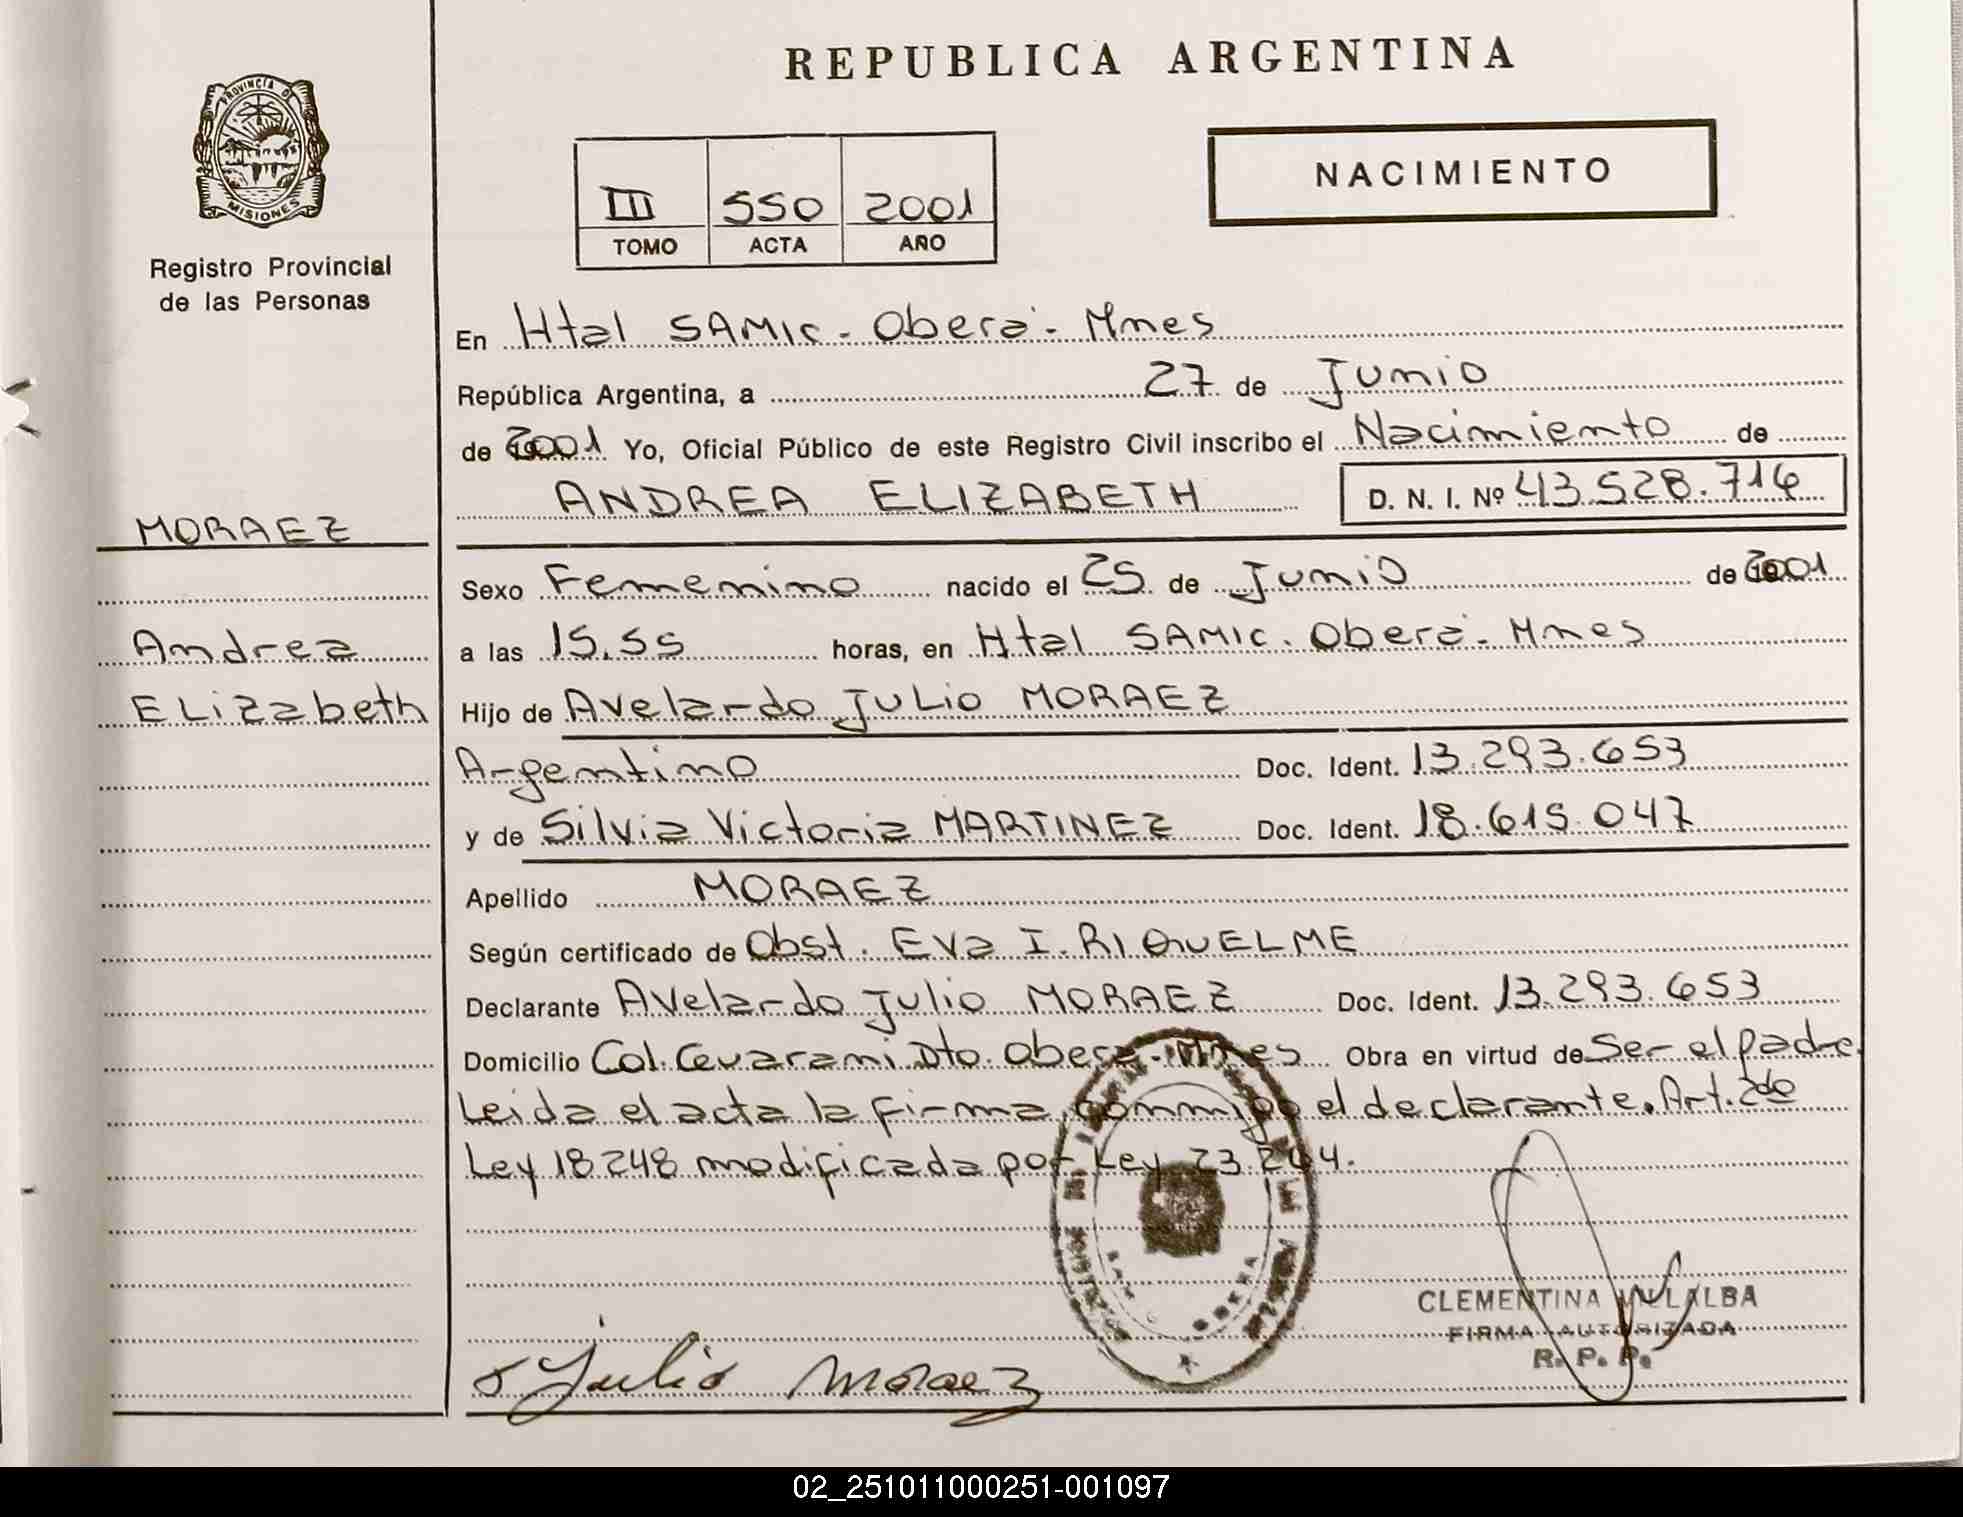 REPUBLICA ARGENTINA
PROVINCIA DE
MISIONES
Registro Provincial
de las Personas
III 550 2001
TOMO ACTA AÑO
NACIMIENTO
En Htal SAMIC - Oberá - Mnes
República Argentina, a 27 de Junio
de 2001 Yo, Oficial Público de este Registro Civil inscribo el Nacimiento de
ANDREA ELIZABETH D. N. I. Nº 43.528.714
MORAEZ
Sexo Femenino nacido el 25 de Junio de 2001
Andrea
a las 15.55 horas, en Htal SAMIC. Oberá - Mnes
ELizabeth
Hijo de Avelardo JULio MORAEZ
Argentino Doc. Ident. 13.293.653
y de Silvia Victoria MARTINEZ Doc. Ident. 18.615.047
Apellido MORAEZ
Según certificado de Obst. Eva I. RIQUELME
Declarante Avelardo Julio MORAEZ Doc. Ident. 13.293.653
Domicilio Col. Guaraní Dto. Oberá - Mnes Obra en virtud de Ser el padre.
Leida el acta la firma conmigo el declarante. Art. 2do
Ley 18248 modificada por Ley 23.264.
OBERA
CLEMENTINA VILLALBA
FIRMA AUTORIZADA
R. P. P.
Julio Moraez
02_251011000251-001097